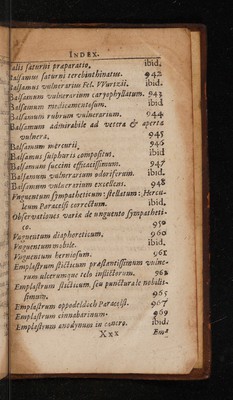 INDEX.
Salis saturni præparatio. ibid.
Balsamus saturni terebinthinatus. 942
Balsamus vulnerarius Fel. VVurtzii. ibid.
Balsamum vulnerarium caryophyllatum. 943
Balsamum medicamentosum. ibid
Balsamum rubrum vulnerarium. 944
Balsamum admirabile ad vetera & aperta
vulnera. 945
Balsamum mercurii. 946
Balsamus sulphuris compositus. ibid
Balsamum succini efficacissimum. 947
Balsamum vulnerarium odoriferum. ibid.
Balsamum vulnerarium excellens. 948
Vnguentum sympatheticum: stellatum: Hercu-
leum Paracelsi correctum. ibid.
Observationes varia de unguento sympatheti-
co. 950
Vnguentum diaphoreticum. 960
Vnguentum nobile. ibid.
Vnguentum herniosum. 961
Emplastrum sticticum præstantissimum vulne-
rum ulcerumque telo inflictorum. 962
Emplastrum sticticum, seu punctura le nobilis-
simum. 965
Emplastrum oppodeldoch Paracelsi. 967
Emplastrum cinnabarinum. 969
Emplastrum anodynum in contra. ibid.
Xxx Em-